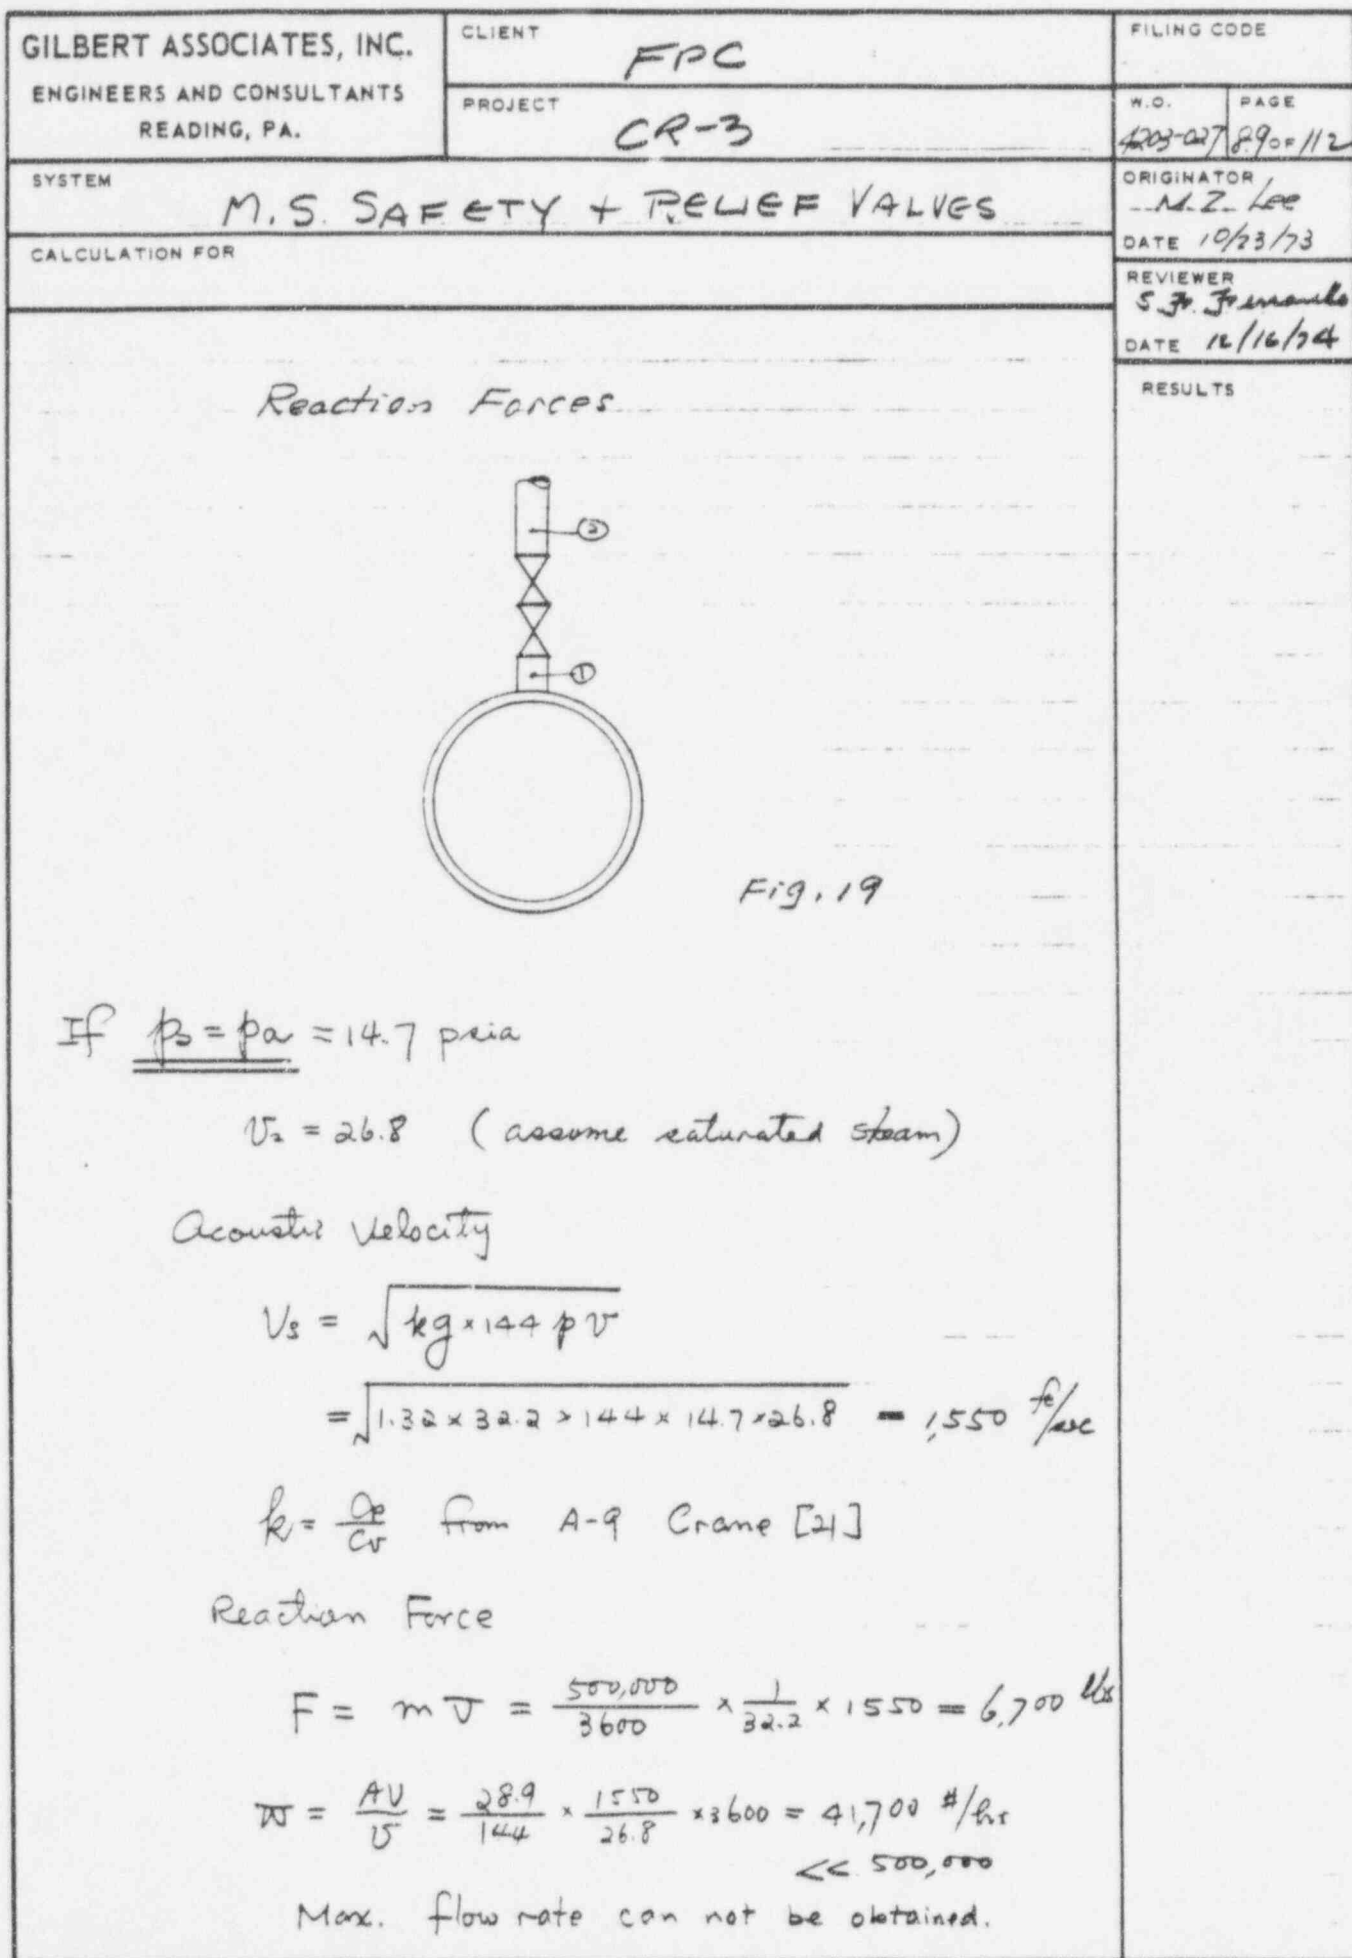 GILBERT ASSOCIATES, INC.
ENGINEERS AND CONSULTANTS
READING, PA.
CLIENT
FPC
PROJECT
CR-3
FILING CODE
W.O.
4203-027
PAGE
89 OF 112
SYSTEM
M.S. SAFETY + RELIEF VALVES
ORIGINATOR
M.Z. Lee
DATE 10/23/73
CALCULATION FOR
REVIEWER
DATE 12/16/74
RESULTS
Reaction Forces
②
①
Fig. 19
If p₂ = pa = 14.7 psia
v₂ = 26.8 (assume saturated steam)
Acoustic Velocity
Vs = √kg × 144 p v
= √1.32 × 32.2 × 144 × 14.7 × 26.8 = 1,550 ft/sec
k = Cp/Cv from A-9 Crane [21]
Reaction Force
F = m V = 500,000/3600 × 1/32.2 × 1550 = 6,700 lbs
w = AV/v = 28.9/144 × 1550/26.8 × 3600 = 41,700 #/hr
<< 500,000
Max. flow rate can not be obtained.